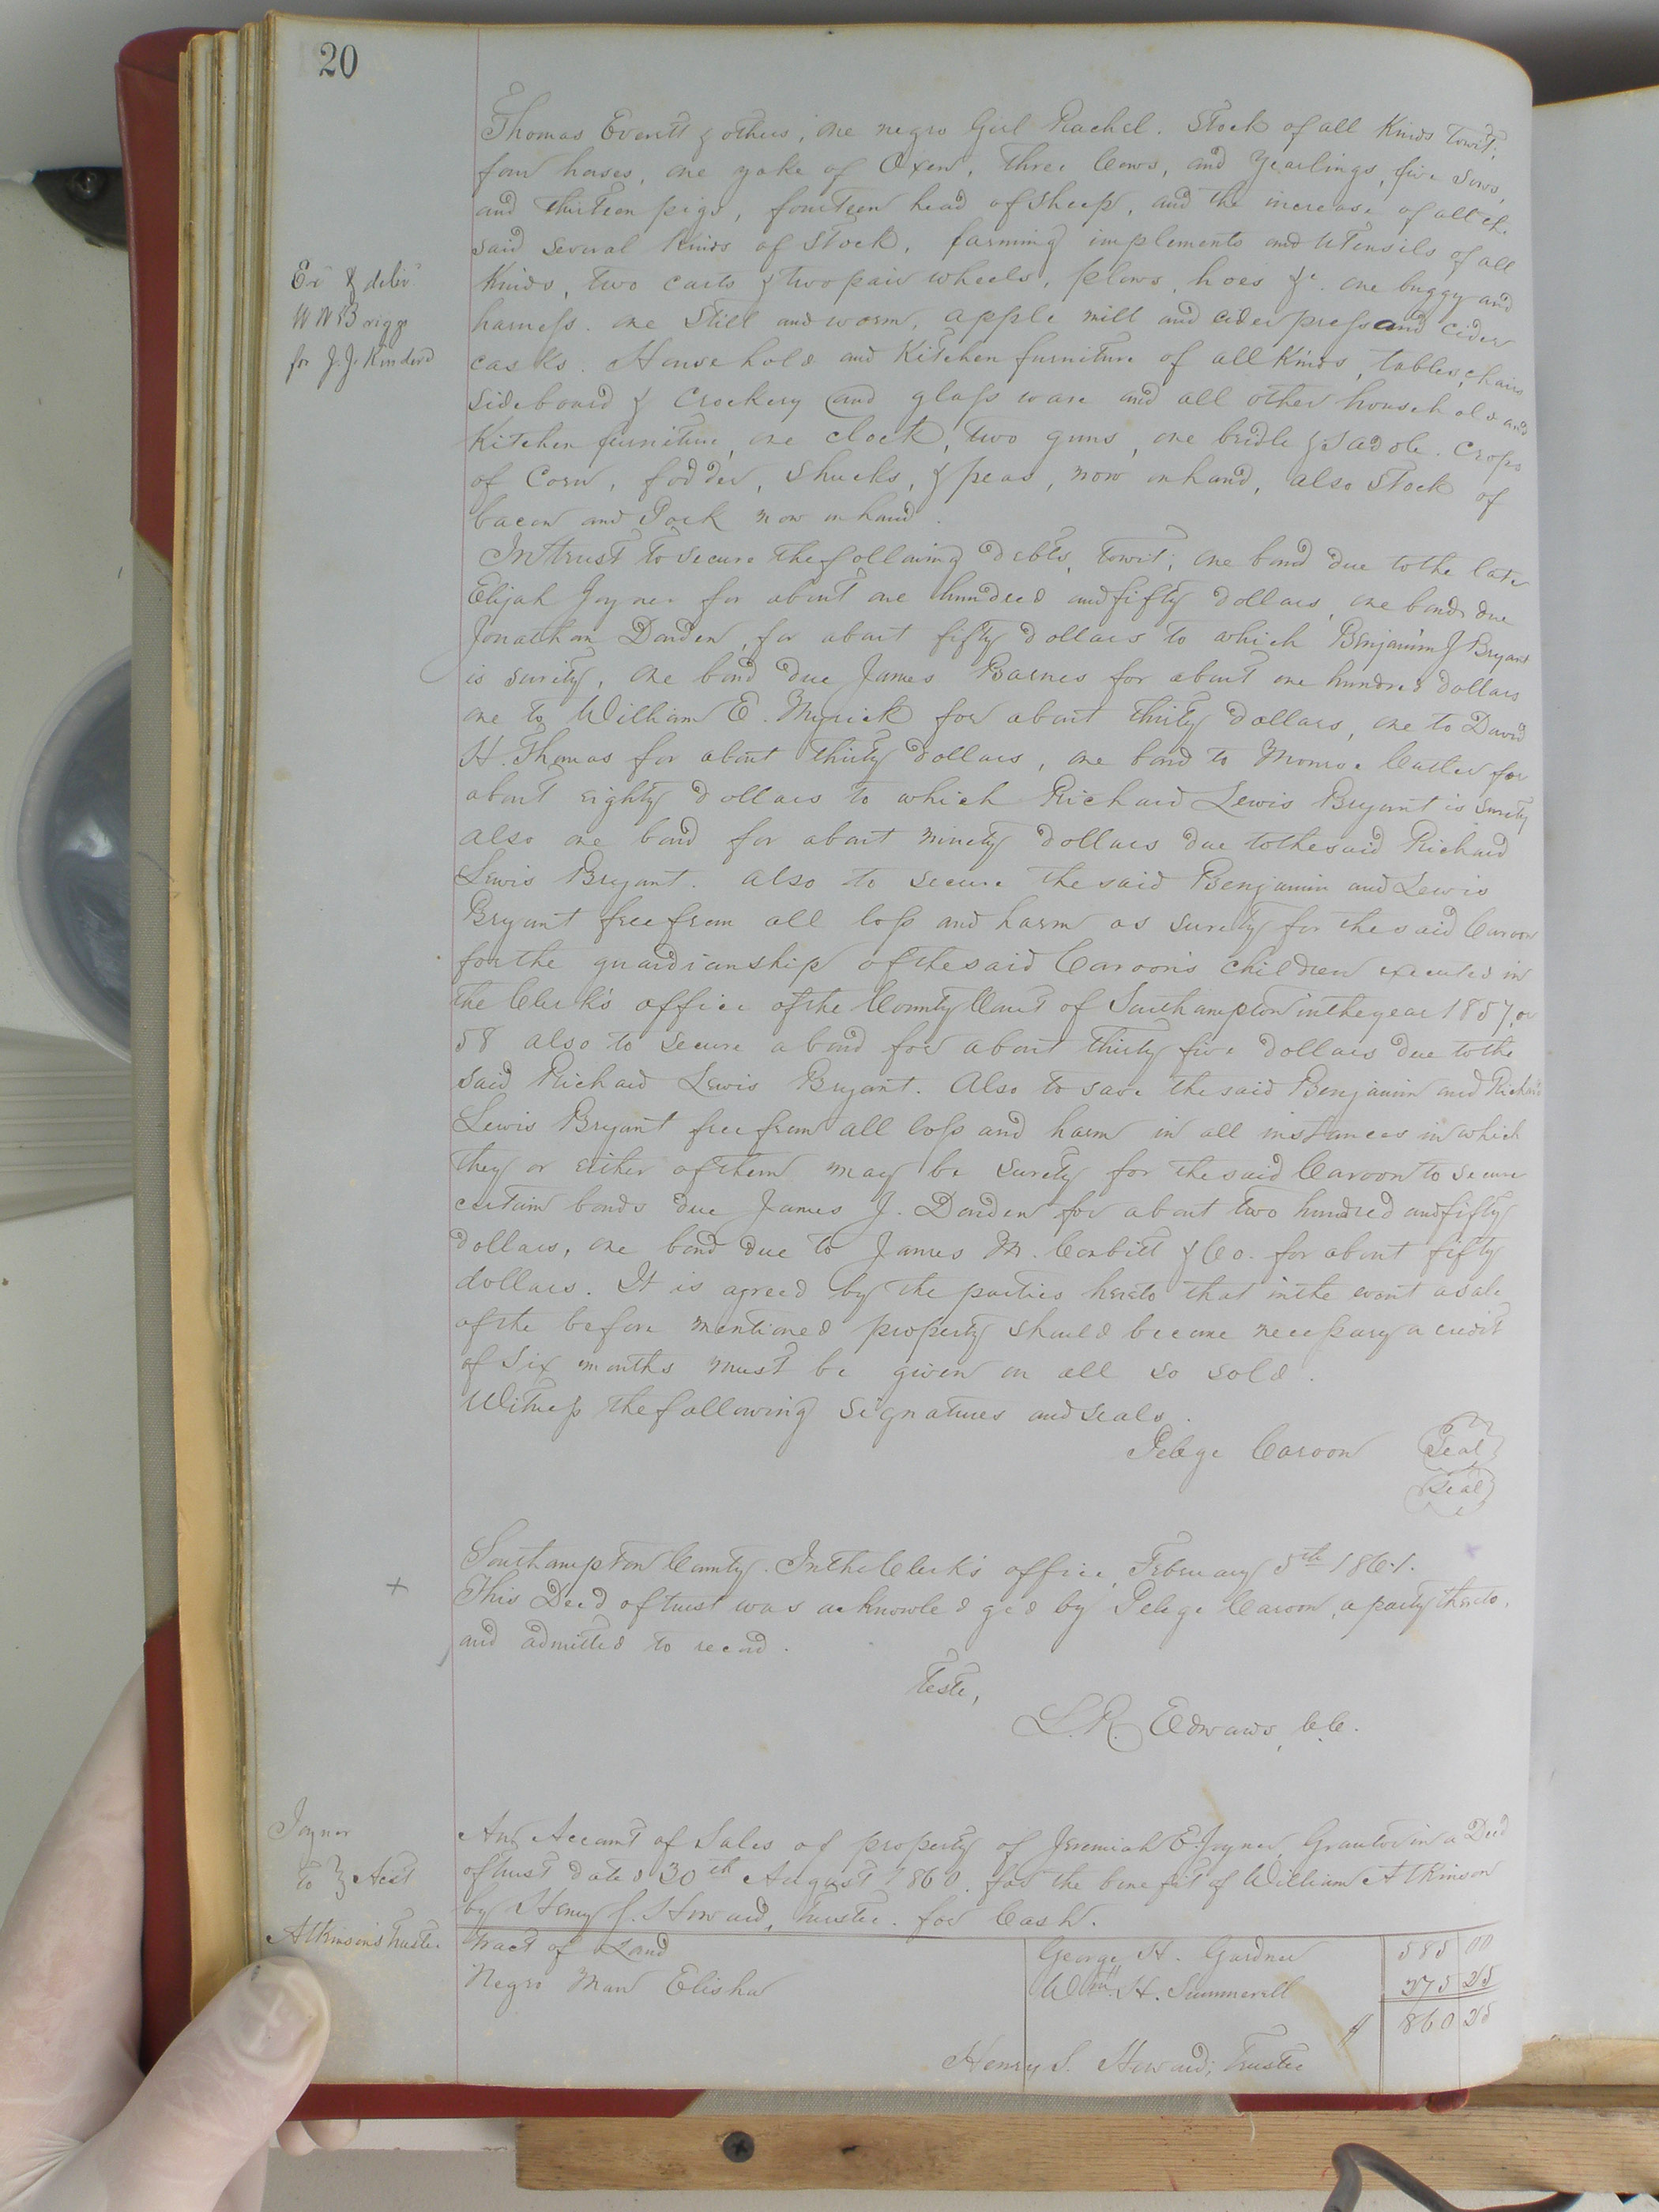 20
Thomas Everett & others, one negro Girl Rachel. Stock of all Kinds towit;
four horses, one yoke of Oxen, three Cows, and Yearlings, five Sows,
and thirteen pigs, fourteen head of sheep, and the increase of all th.
said several kinds of stock, farming implements and utensils of all
Kinds, two carts & two pair wheels, plows, hoes &c. one buggy and
harness. one Still and worm, apple mill and cider press and cider
casks. Household and Kitchen furniture of all Kinds, tables, chairs
sideboard & Crockery and glass ware and all other household and
Kitchen furniture, one clock, two guns, one bridle & saddle. Crops
of Corn, fodder, shucks, & peas, now on hand, also stock of
bacon and Pork now on hand.
Ex & deliv
W N Briggs
for J. J. Kindred
In trust to secure the following debts, towit; one bond due to the late
Elijah Joyner for about one hundred and fifty dollars, one bond due
Jonathan Darden, for about fifty dollars to which Benjamin J Bryant
is surity, one bond due James Barnes for about one hundred dollars
one to William E. Myrick for about thirty dollars, one to David
H. Thomas for about thirty dollars, one bond to Monroe Cutler for
about eighty dollars to which Richard Lewis Bryant is surety
also one bond for about ninety dollars due to the said Richard
Lewis Bryant. also to secure the said Benjamin and Lewis
Bryant free from all loss and harm as surety for the said Caroon
for the guardianship of the said Caroon's children executed in
the Clerk's office of the County Court of Southampton in the year 1857, or
58 also to secure a bond for about thirty five dollars due to the
said Richard Lewis Bryant. Also to save the said Benjamin and Richard
Lewis Bryant free from all loss and harm in all instances in which
they or either of them may be surety for the said Caroon to secure
certain bonds due James J. Darden for about two hundred and fifty
dollars, one bond due to James M. Corbitt & Co. for about fifty
dollars. It is agreed by the parties hereto that in the event a sale
of the before mentioned property should become necessary a credit
of six months must be given on all so sold.
Witness the following signatures and seals.
Pelege Caroon Seal
Seal
Southampton County. In the Clerk's office, February 5th 1861.
+ This Deed of trust was acknowledged by Pelege Caroon, a party thereto,
and admitted to record.
Teste,
L. R. Edwards, C.C.
Joyner
to } Acct
Atkinson's Trustee
An Account of Sales of property of Jeremiah E. Joyner, Grantor in a Deed
of trust dated 30th August 1860. for the benefit of William Atkinson
by Henry S. Howard, Trustee. for Cash.
Tract of Land George H. Gardner 585 00
Negro Man Elisha Wm. H. Summerell 275 25
860 25
Henry S. Howard; Trustee